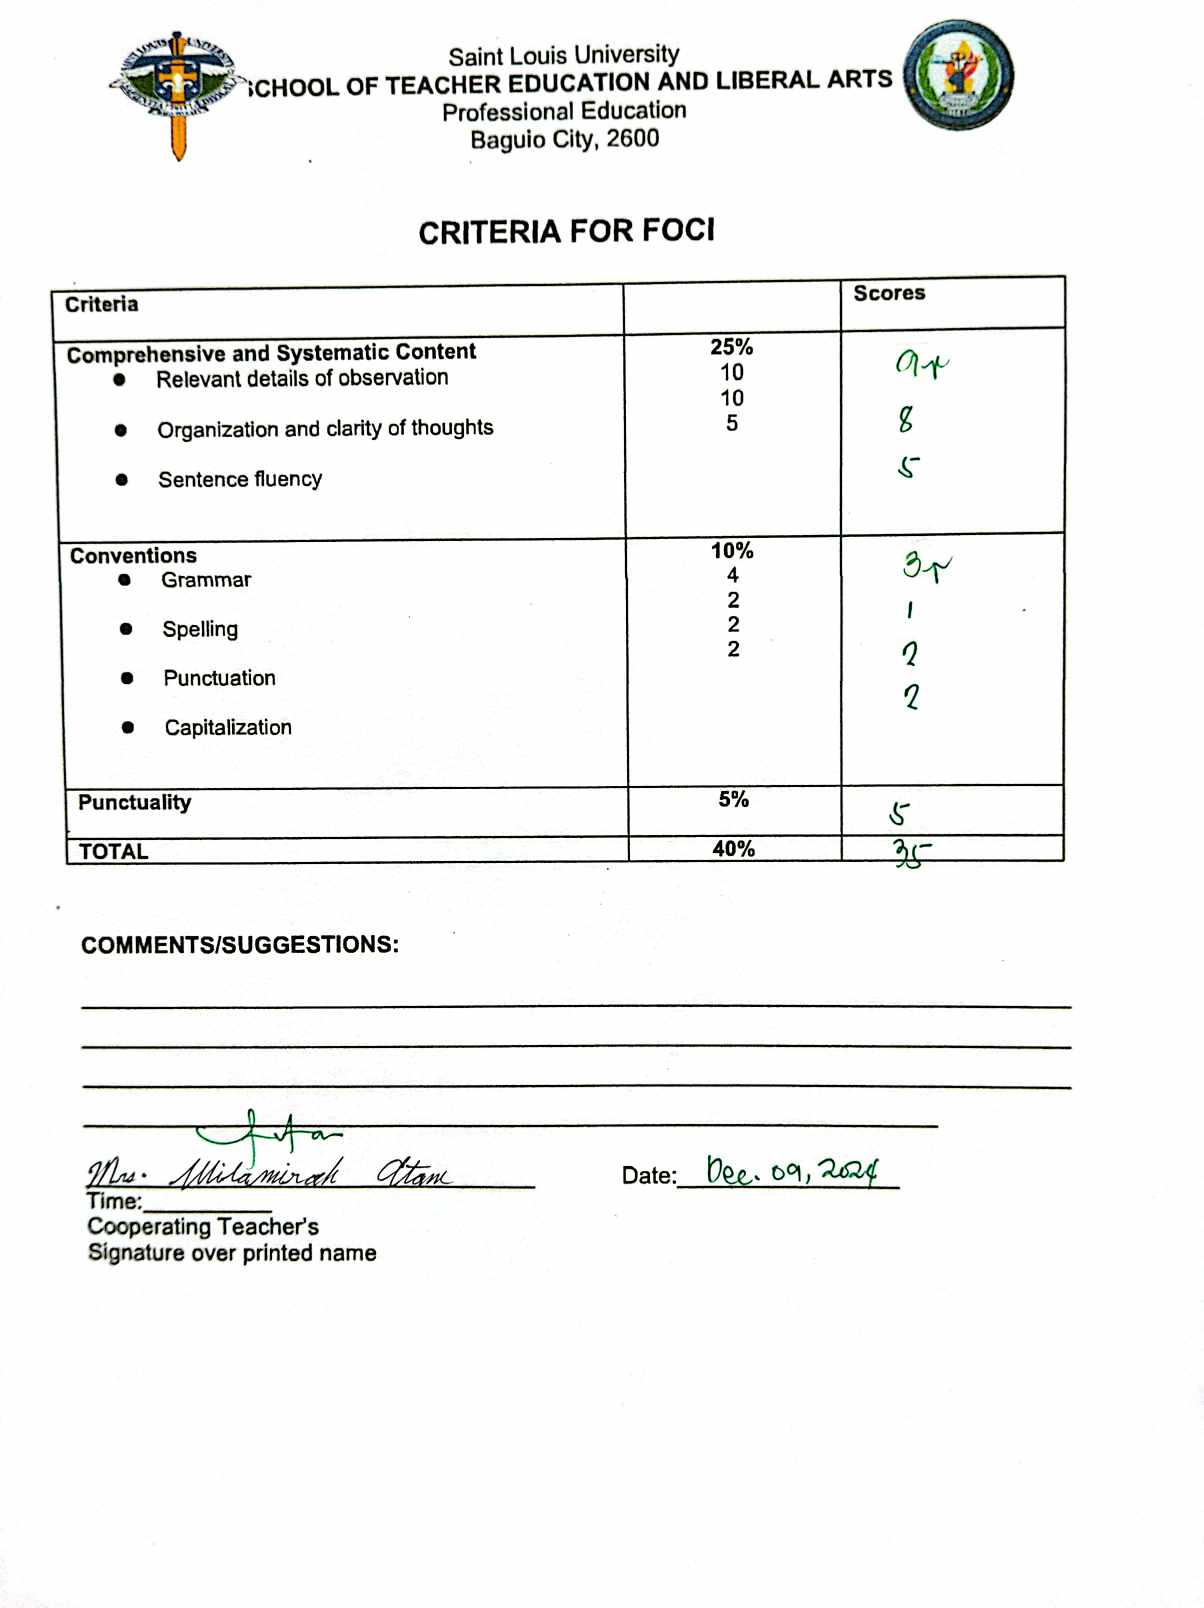 Saint Louis University
SCHOOL OF TEACHER EDUCATION AND LIBERAL ARTS
Professional Education
Baguio City, 2600
CRITERIA FOR FOCI
Criteria Scores
Comprehensive and Systematic Content 25%
● Relevant details of observation 10 9
10
● Organization and clarity of thoughts 5 8
● Sentence fluency 5
Conventions 10%
● Grammar 4 3
2
● Spelling 2 1
2
● Punctuation 2
● Capitalization 2
Punctuality 5% 5
TOTAL 40% 35
COMMENTS/SUGGESTIONS:
Mrs. Milamirah Atam Date: Dec. 09, 2024
Time:
Cooperating Teacher's
Signature over printed name